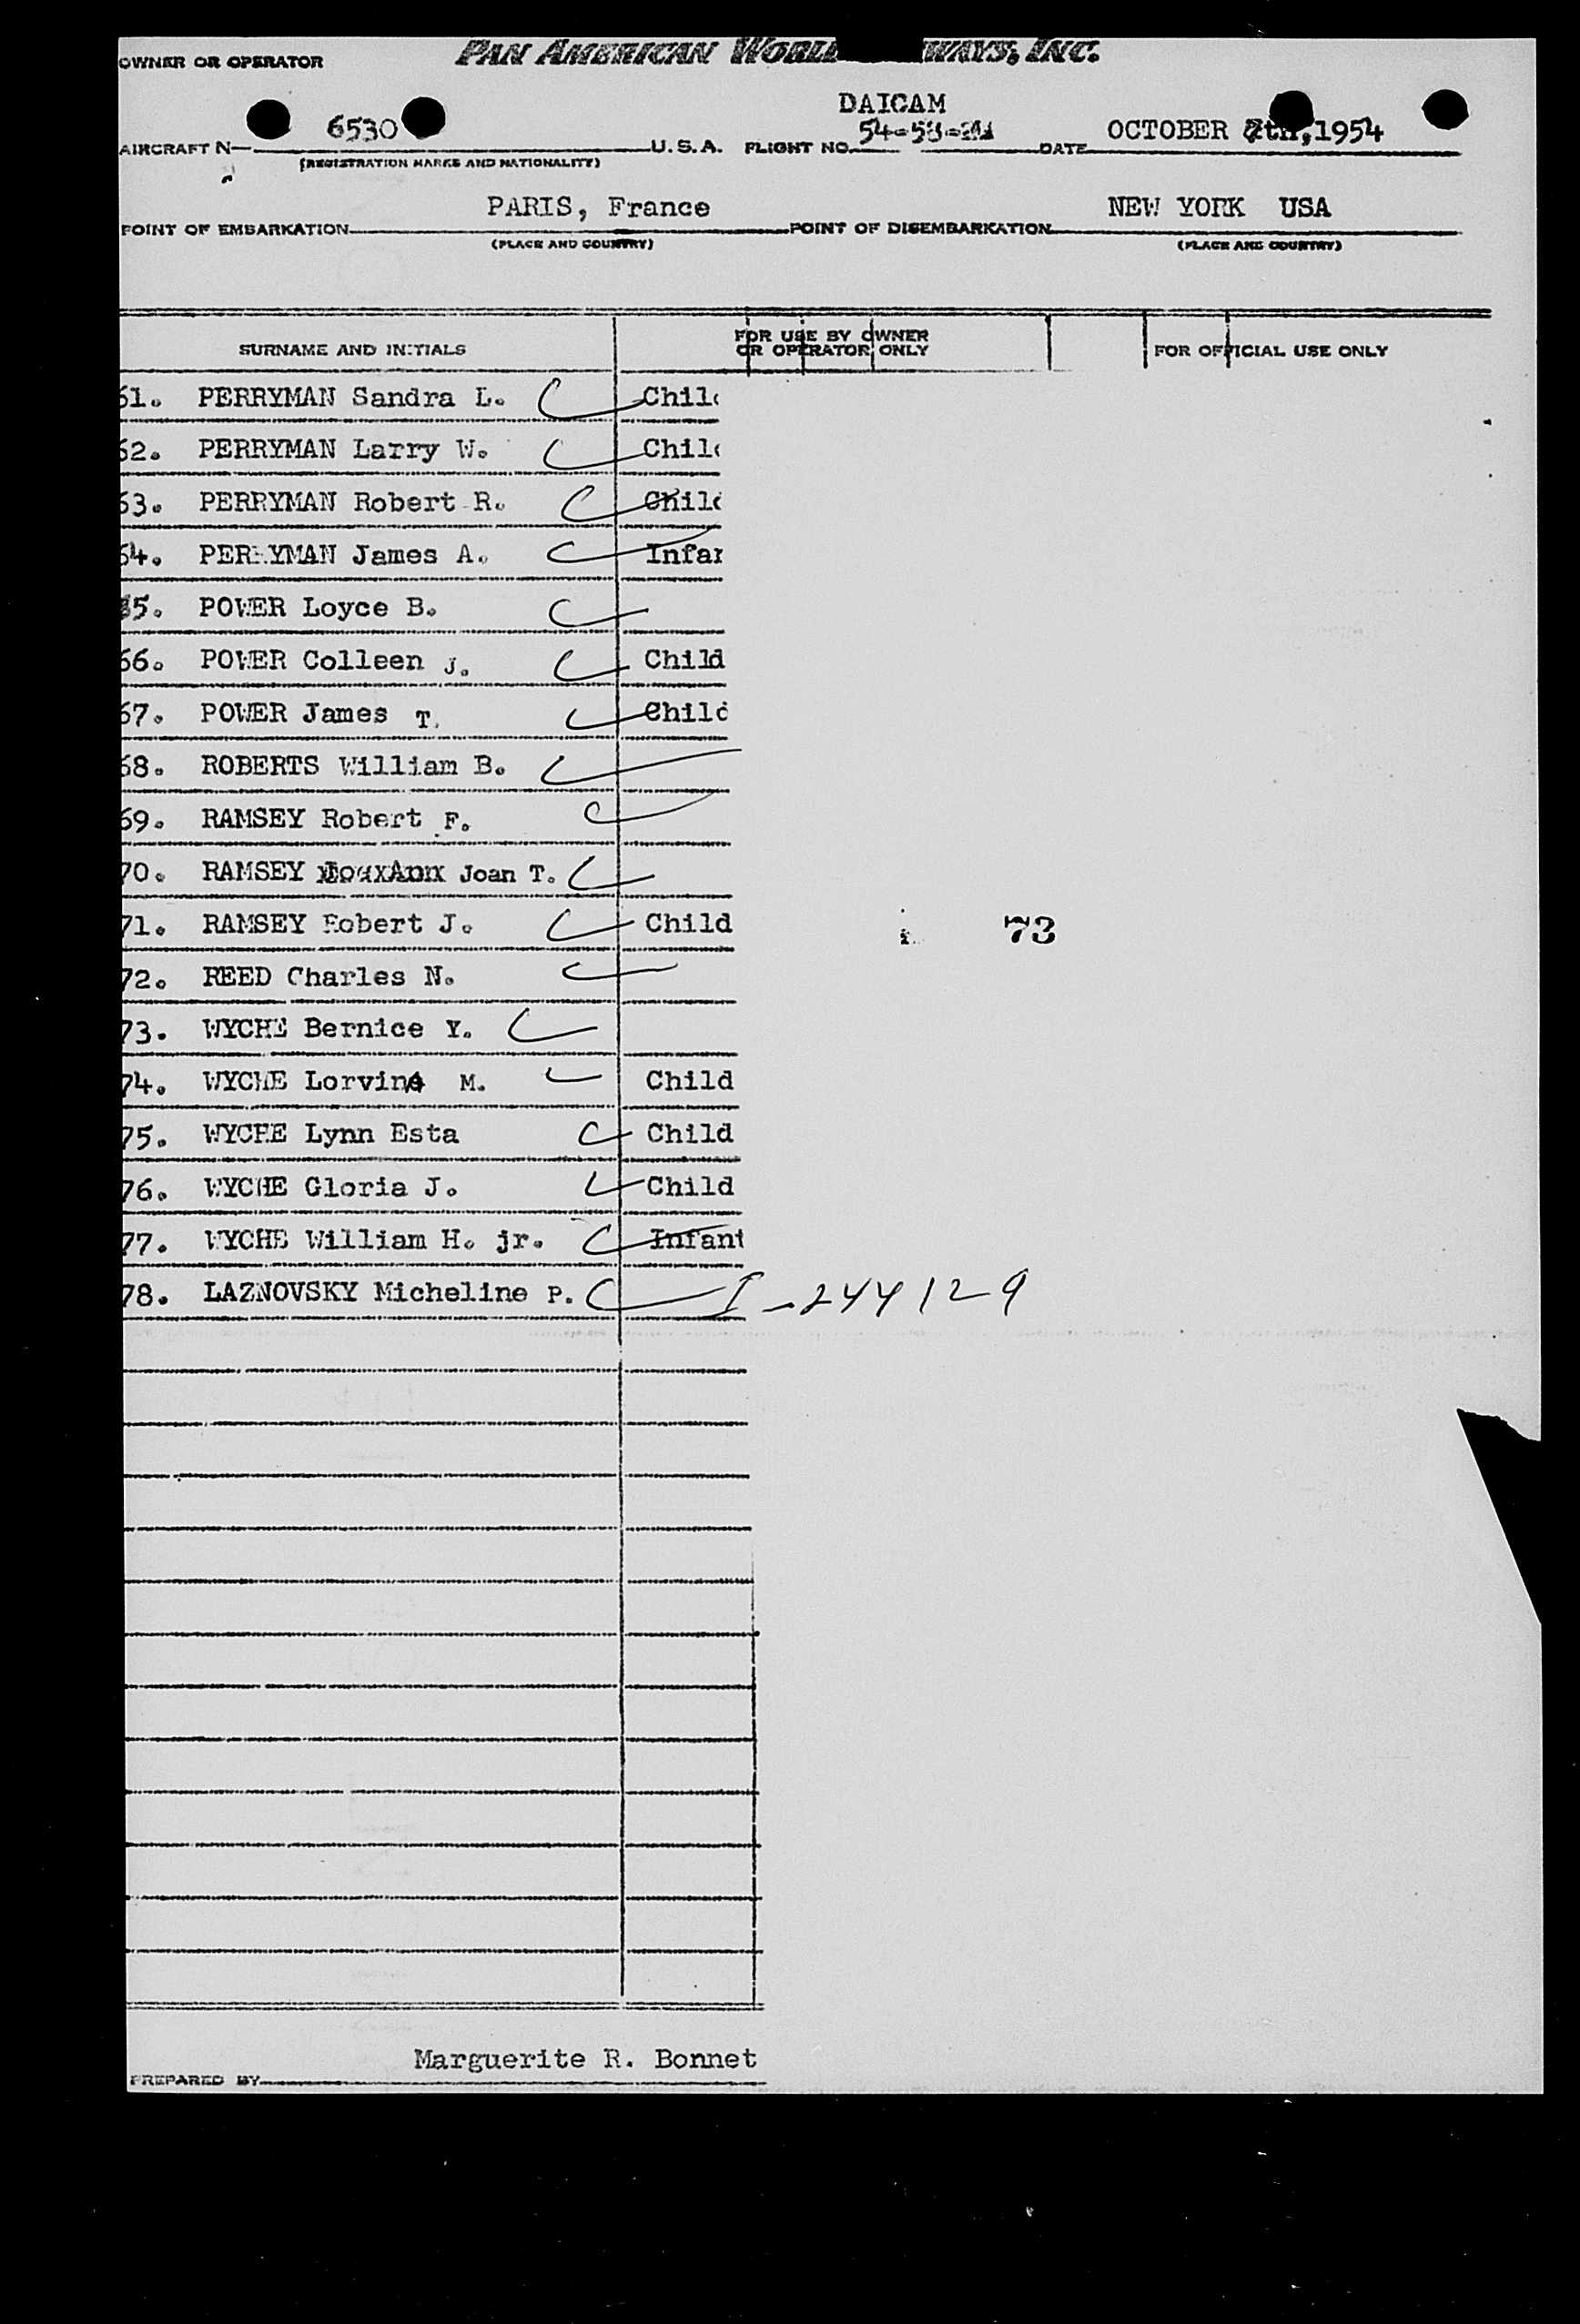 OWNER OR OPERATOR PAN AMERICAN WORL WAYS, INC.
DAICAM
AIRCRAFT N— 6530 U.S.A. FLIGHT NO. 54-58- DATE OCTOBER 7th, 1954
(REGISTRATION MARKS AND NATIONALITY)
POINT OF EMBARKATION PARIS, France POINT OF DISEMBARKATION NEW YORK USA
(PLACE AND COUNTRY) (PLACE AND COUNTRY)
SURNAME AND INITIALS FOR USE BY OWNER OR OPERATOR ONLY FOR OFFICIAL USE ONLY
61. PERRYMAN Sandra L. Chil
62. PERRYMAN Larry W. Chil
63. PERRYMAN Robert R. Chil
64. PERRYMAN James A. Infan
65. POWER Loyce B.
66. POWER Colleen J. Child
67. POWER James T. Child
68. ROBERTS William B.
69. RAMSEY Robert F.
70. RAMSEY Joan T.
71. RAMSEY Robert J. Child 73
72. REED Charles N.
73. WYCHE Bernice Y.
74. WYCHE Lorvina M. Child
75. WYCHE Lynn Esta Child
76. WYCHE Gloria J. Child
77. WYCHE William H. jr. Infant
78. LAZNOVSKY Micheline P. I-244129
Marguerite R. Bonnet
PREPARED BY